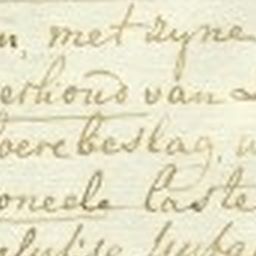 met zyne
erhoud van
oerebeslag,
oneele laste